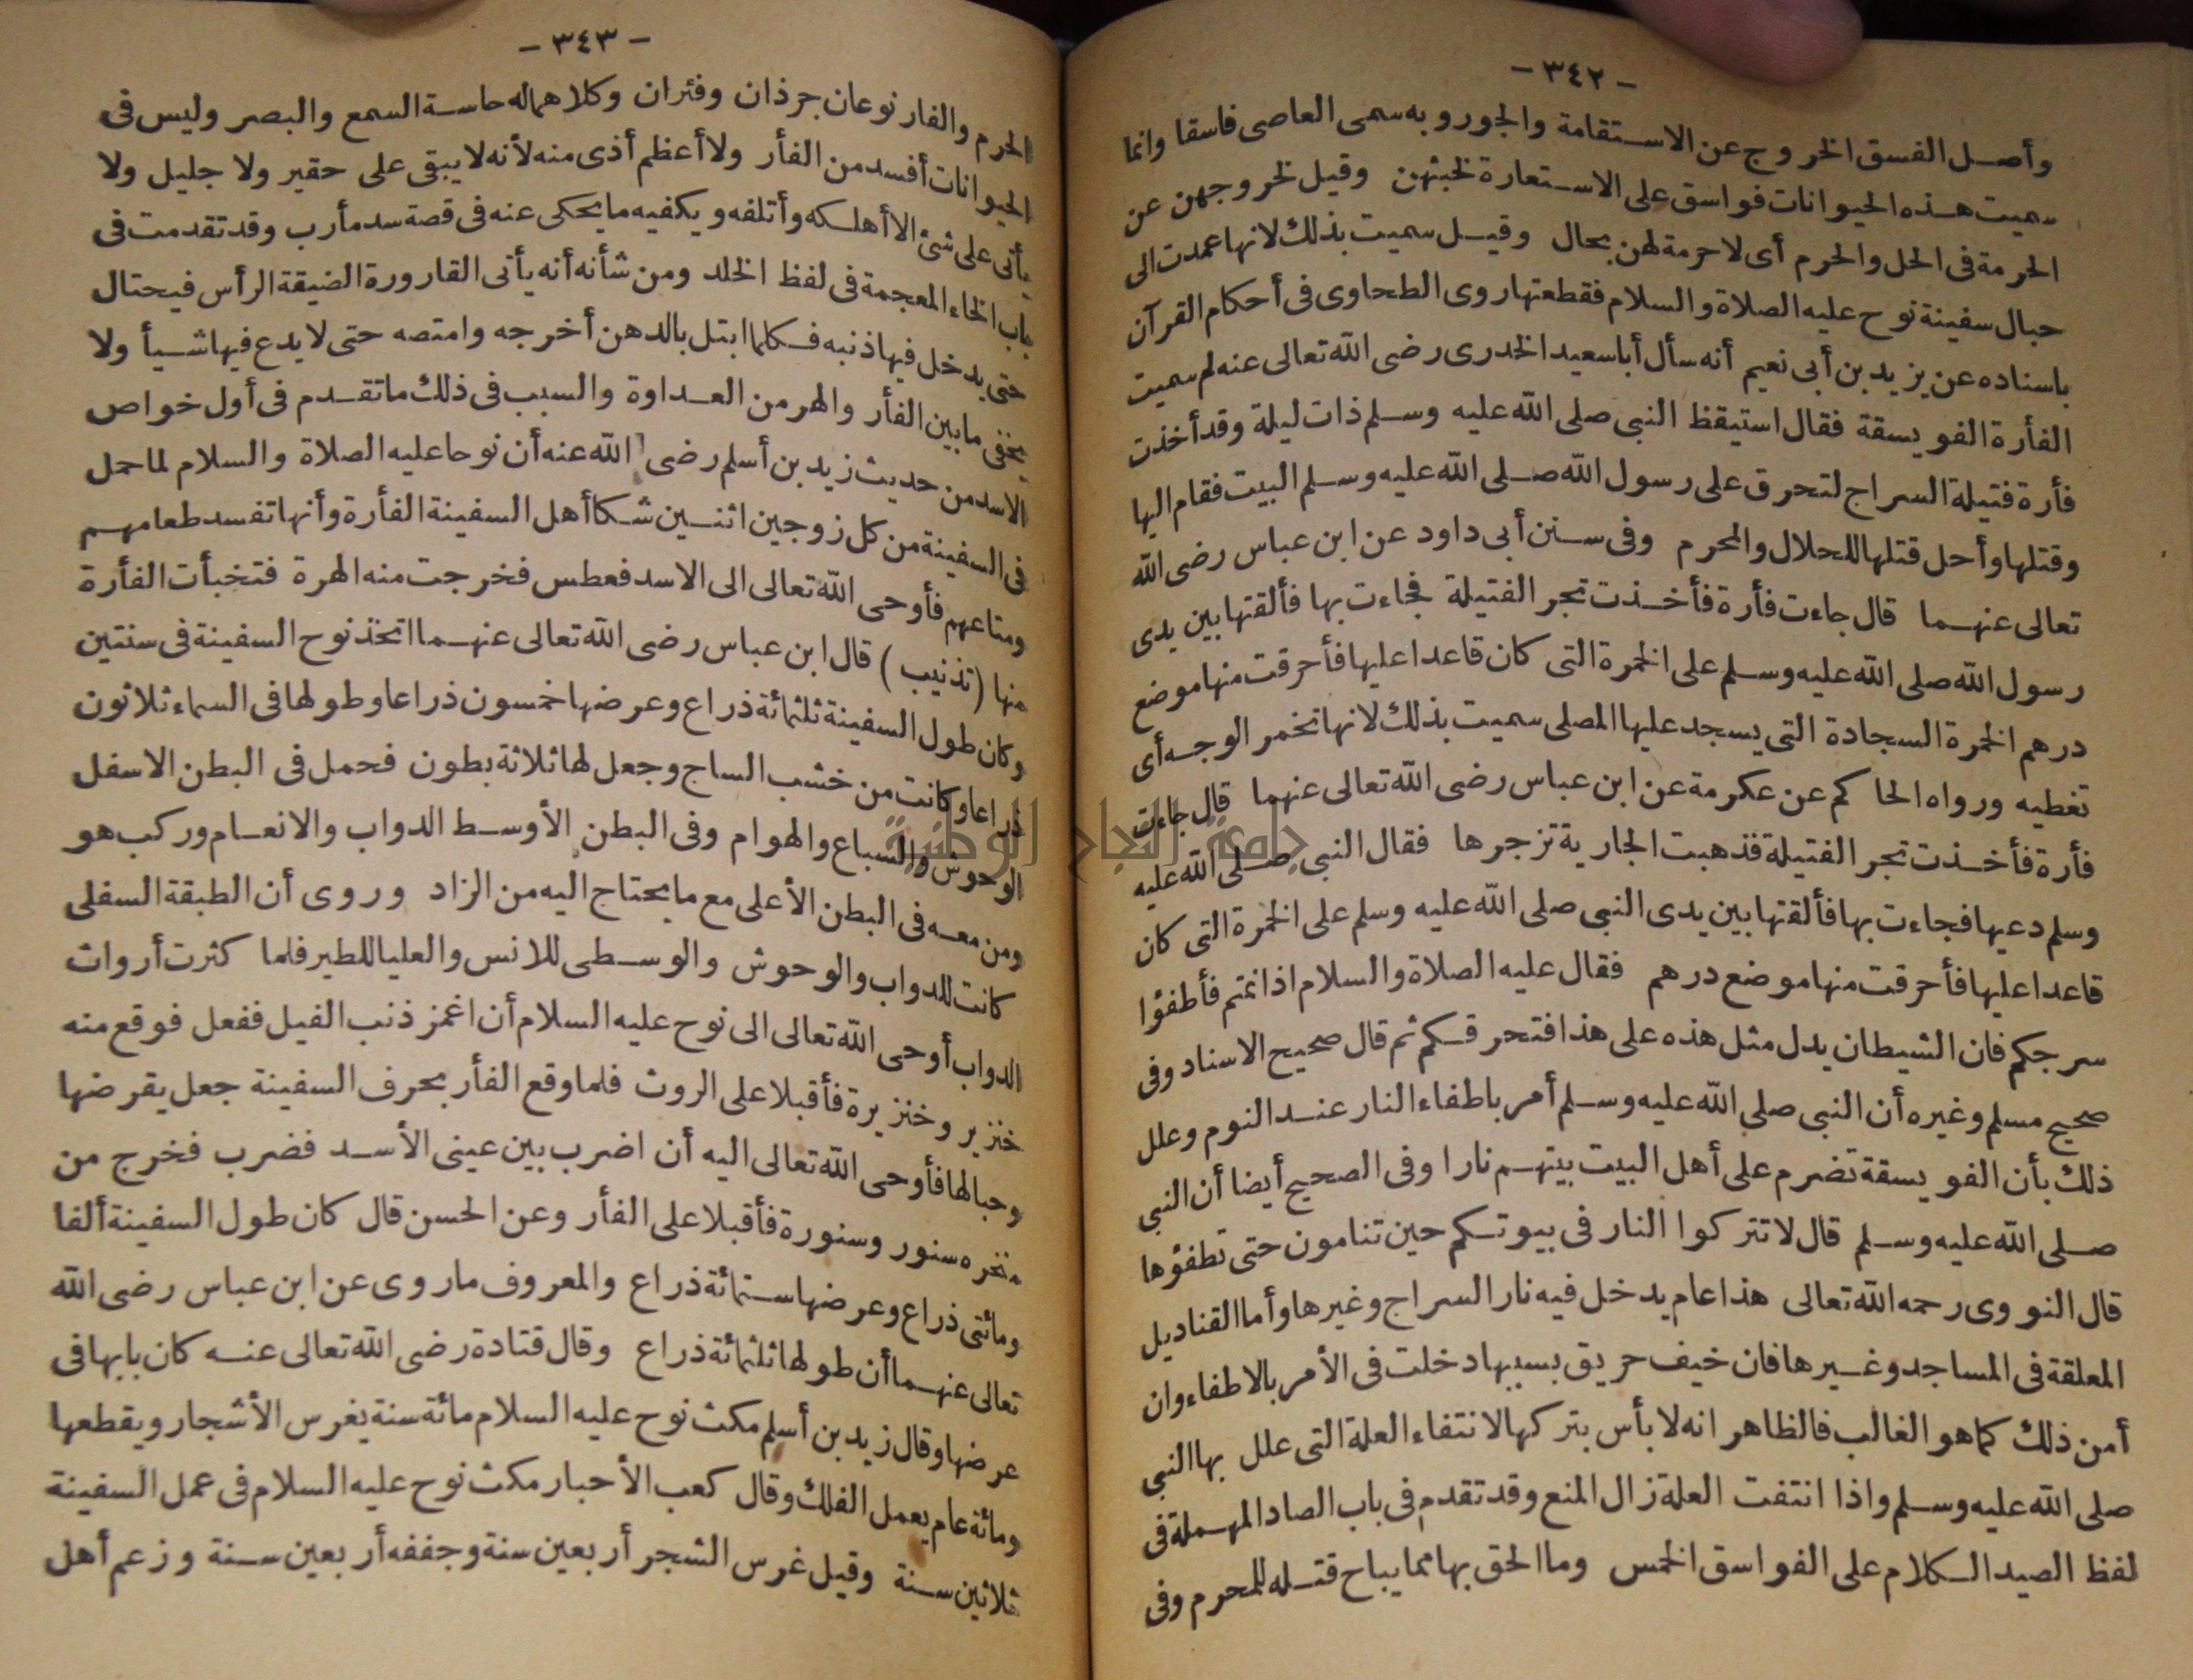 - ٣٤٢ -
وأصل الفسق الخروج عن الاستقامة والجور وبه سمى العاصى فاسقا وانما
سميت هذه الحيوانات فواسق على الاستعارة لخبثهن وقيل لخروجهن عن
الحرمة فى الحل والحرم أى لا حرمة لهن بحال وقيل سميت بذلك لانها عمدت الى
حبال سفينة نوح عليه الصلاة والسلام فقطعتها روى الطحاوى فى أحكام القرآن
باسناده عن يزيد بن أبى نعيم أنه سأل أبا سعيد الخدرى رضى الله تعالى عنه لم سميت
الفأرة الفويسقة فقال استيقظ النبى صلى الله عليه وسلم ذات ليلة وقد أخذت
فأرة فتيلة السراج لتحرق على رسول الله صلى الله عليه وسلم البيت فقام اليها
وقتلها وأحل قتلها للحلال والمحرم وفى سنن أبى داود عن ابن عباس رضى الله
تعالى عنهما قال جاءت فأرة فأخذت تجر الفتيلة فجاءت بها فألقتها بين يدى
رسول الله صلى الله عليه وسلم على الخمرة التى كان قاعدا عليها فأحرقت منها موضع
درهم الخمرة السجادة التى يسجد عليها المصلى سميت بذلك لانها تخمر الوجه أى
تغطيه ورواه الحاكم عن عكرمة عن ابن عباس رضى الله تعالى عنهما قال جاءت
فأرة فأخذت تجر الفتيلة فذهبت الجارية تزجرها فقال النبى صلى الله عليه
وسلم دعيها فجاءت بها فألقتها بين يدى النبى صلى الله عليه وسلم على الخمرة التى كان
قاعدا عليها فأحرقت منها موضع درهم فقال عليه الصلاة والسلام اذا نمتم فأطفؤا
سرجكم فان الشيطان يدل مثل هذه على هذا فتحرقكم ثم قال صحيح الاسناد وفى
صحيح مسلم وغيره أن النبى صلى الله عليه وسلم أمر باطفاء النار عند النوم وعلل
ذلك بأن الفويسقة تضرم على أهل البيت بيتهم نارا وفى الصحيح أيضا أن النبى
صلى الله عليه وسلم قال لا تتركوا النار فى بيوتكم حين تنامون حتى تطفؤها
قال النووى رحمه الله تعالى هذا عام يدخل فيه نار السراج وغيرها وأما القناديل
المعلقة فى المساجد وغيرها فان خيف حريق بسببها دخلت فى الأمر بالاطفاء وان
أمن ذلك كما هو الغالب فالظاهر انه لا بأس بتركها لانتفاء العلة التى علل بها النبى
صلى الله عليه وسلم واذا انتفت العلة زال المنع وقد تقدم فى باب الصاد المهملة فى
لفظ الصيد الكلام على الفواسق الخمس وما الحق بها مما يباح قتله للمحرم وفى
- ٣٤٣ -
الحرم والفار نوعان جرذان وفئران وكلاهما له حاسة السمع والبصر وليس فى
الحيوانات أفسد من الفأر ولا أعظم أذى منه لأنه لا يبقى على حقير ولا جليل ولا
يأتى على شئ الا أهلكه وأتلفه ويكفيه ما يحكى عنه فى قصة سد مأرب وقد تقدمت فى
باب الخاء المعجمة فى لفظ الخلد ومن شأنه أنه يأتى القارورة الضيقة الرأس فيحتال
حتى يدخل فيها ذنبه فكلما ابتل بالدهن أخرجه وامتصه حتى لا يدع فيها شيأ ولا
يخفى ما بين الفأر والهر من العداوة والسبب فى ذلك ما تقدم فى أول خواص
الاسد من حديث زيد بن أسلم رضى الله عنه أن نوحا عليه الصلاة والسلام لما حمل
فى السفينة من كل زوجين اثنين شكا أهل السفينة الفأرة وأنها تفسد طعامهم
ومتاعهم فأوحى الله تعالى الى الاسد فعطس فخرجت منه الهرة فتخبأت الفأرة
منها (تذنيب) قال ابن عباس رضى الله تعالى عنهما اتخذ نوح السفينة فى سنتين
وكان طول السفينة ثلثمائة ذراع وعرضها خمسون ذراعا وطولها فى السماء ثلاثون
ذراعا وكانت من خشب الساج وجعل لها ثلاثة بطون فحمل فى البطن الاسفل
الوحوش والسباع والهوام وفى البطن الأوسط الدواب والانعام وركب هو
ومن معه فى البطن الأعلى مع ما يحتاج اليه من الزاد وروى أن الطبقة السفلى
كانت للدواب والوحوش والوسطى للانس والعليا للطير فلما كثرت أرواث
الدواب أوحى الله تعالى الى نوح عليه السلام أن اغمز ذنب الفيل ففعل فوقع منه
خنزير وخنزيرة فأقبلا على الروث فلما وقع الفأر بحرف السفينة جعل يقرضها
وحبالها فأوحى الله تعالى اليه أن اضرب بين عينى الأسد فضرب فخرج من
منخره سنور وسنورة فأقبلا على الفأر وعن الحسن قال كان طول السفينة ألفا
ومائتى ذراع وعرضها ستمائة ذراع والمعروف ما روى عن ابن عباس رضى الله
تعالى عنهما أن طولها ثلثمائة ذراع وقال قتادة رضى الله تعالى عنه كان بابها فى
عرضها وقال زيد بن أسلم مكث نوح عليه السلام مائة سنة يغرس الأشجار ويقطعها
ومائة عام يعمل الفلك وقال كعب الأحبار مكث نوح عليه السلام فى عمل السفينة
ثلاثين سنة وقيل غرس الشجر أربعين سنة وجففه أربعين سنة وزعم أهل
جامعة النجاح الوطنية